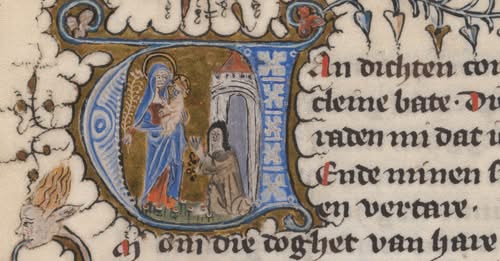 Van dichten
cleine bate · Di
raden mi dat i
Ende minen
en vertare ·
om die doghet van hare